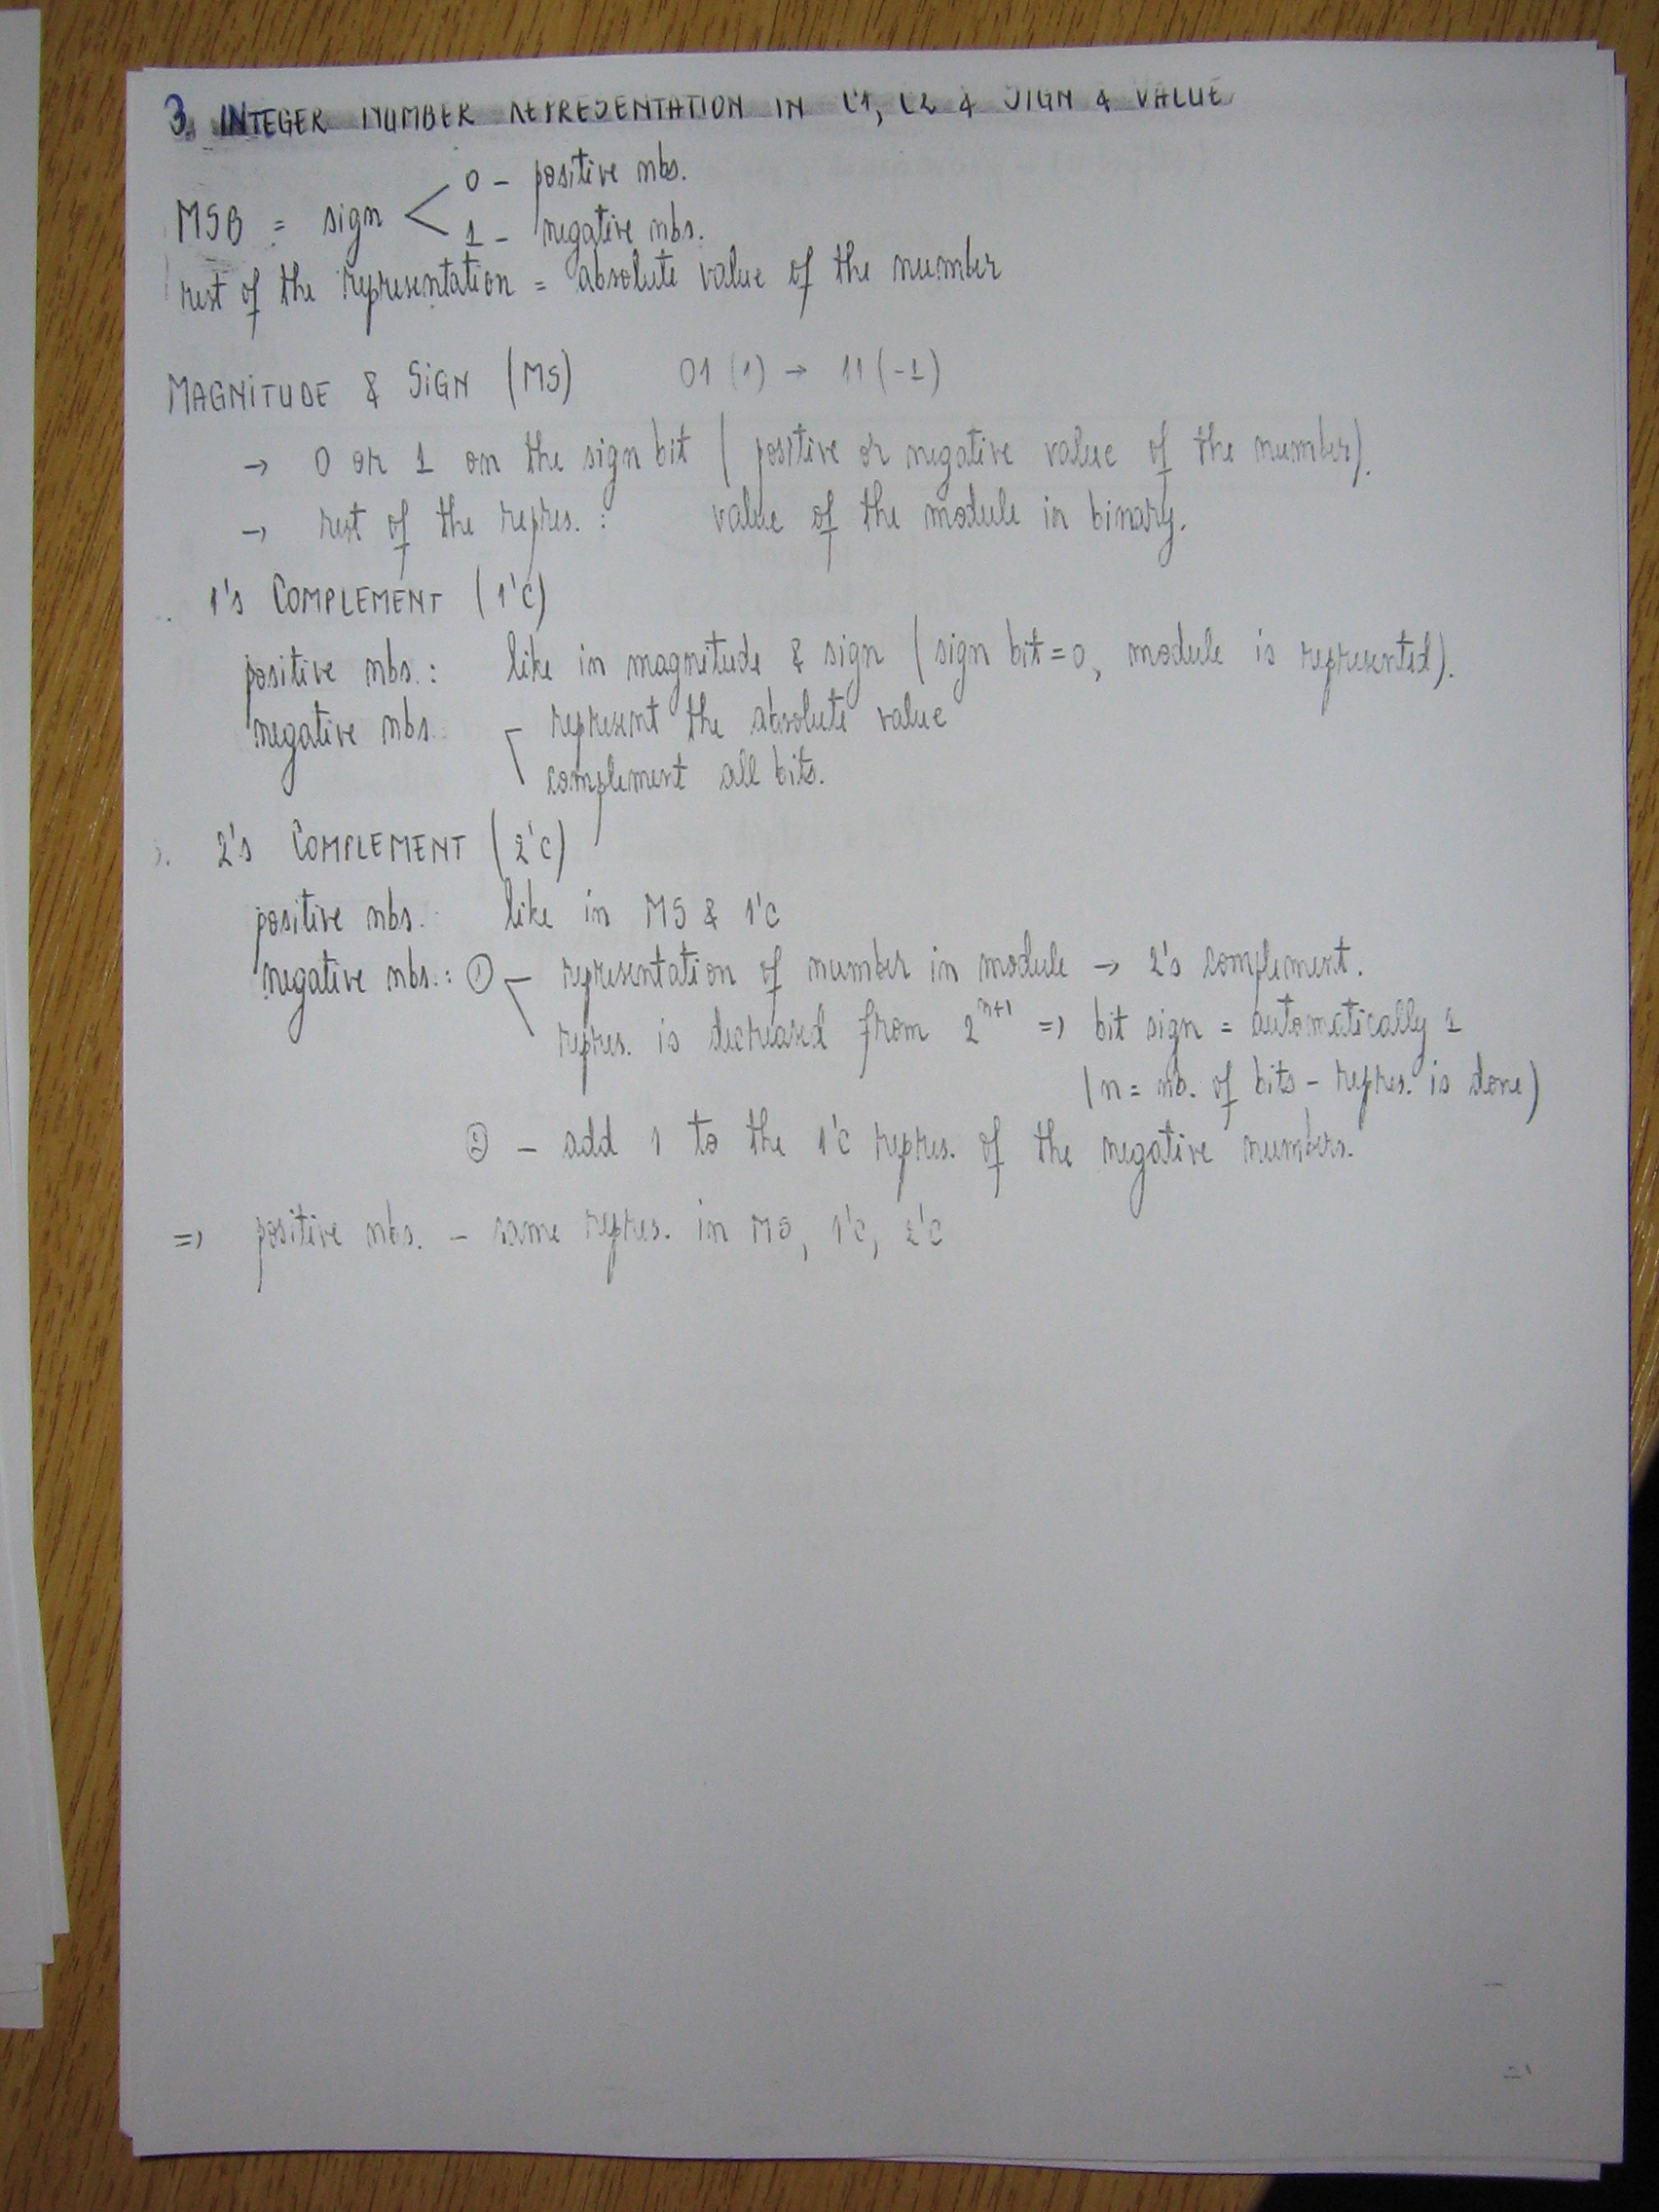 3. INTEGER NUMBER REPRESENTATION IN C1, C2 & SIGN & VALUE
0 - positive nbs.
MSB = sign
1 - negative nbs.
rest of the representation = absolute value of the number
MAGNITUDE & SIGN (MS) 01 (1) → 11 (-1)
→ 0 or 1 on the sign bit (positive or negative value of the number).
→ rest of the repres. : value of the module in binary.
1's COMPLEMENT (1'C)
positive nbs. : like in magnitude & sign (sign bit = 0, module is represented).
negative nbs. - represent the absolute value
complement all bits.
2's COMPLEMENT (2'C)
positive nbs. like in MS & 1'C
negative nbs. : ① - representation of number in module → 2's complement.
repres. is decreased from 2^{n+1} => bit sign = automatically 1
(n = nb. of bits - repres. is done)
② - add 1 to the 1'C repres. of the negative numbers.
=> positive nbs. - same repres. in MS, 1'C, 2'C